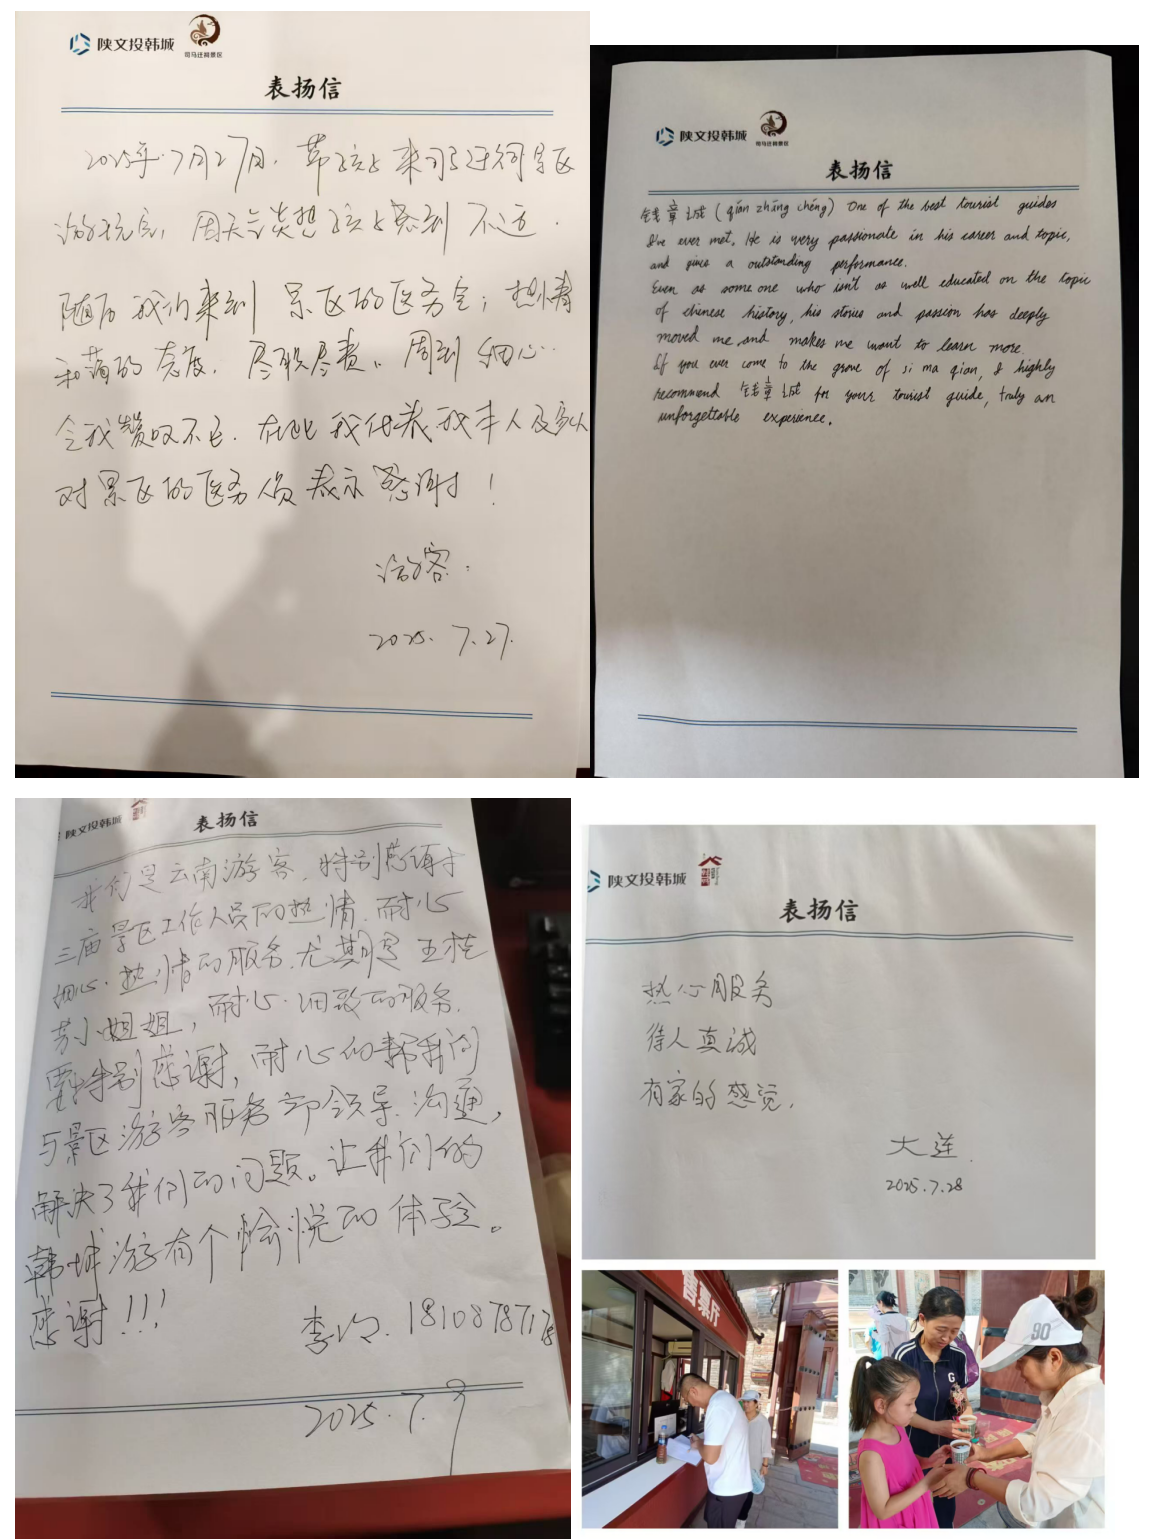 陕文投韩城
司马迁祠景区
表扬信
2025年.7月27日.带孩子来司马迁祠景区
游玩后,因天气炎热孩子感到不适.
随后我们来到景区的医务室;
和蔼的态度.尽职尽责.周到细心.
令我赞叹不已.在此我代表我本人及家人
对景区的医务人员表示感谢!
游客.
2025.7.27.
陕文投韩城
司马迁祠景区
表扬信
钱章诚 (qián zhāng chéng) One of the best tourist guides
I've ever met. He is very passionate in his career and topic,
and gives a outstanding performance.
Even as some one who isn't as well educated on the topic
of chinese history, his stories and passion has deeply
moved me and makes me want to learn more.
If you ever come to the grove of si ma qian, I highly
recommend 钱章诚 for your tourist guide, truly an
unforgettable experience.
陕文投韩城
表扬信
我们是云南游客.特别感谢
三庙景区工作人员的热情.耐心
细心.热情的服务.尤其是王桂
芳小姐姐,耐心.细致的服务.
要特别感谢,耐心的帮我们
与景区游客服务部领导.沟通,
解决了我们的问题。让我们的
韩城游有个愉悦的体验。
感谢!!!
李 1810878717
2025.7.
陕文投韩城
表扬信
热心服务
待人真诚
有家的感觉.
大连.
2025.7.28
售票厅
90
G